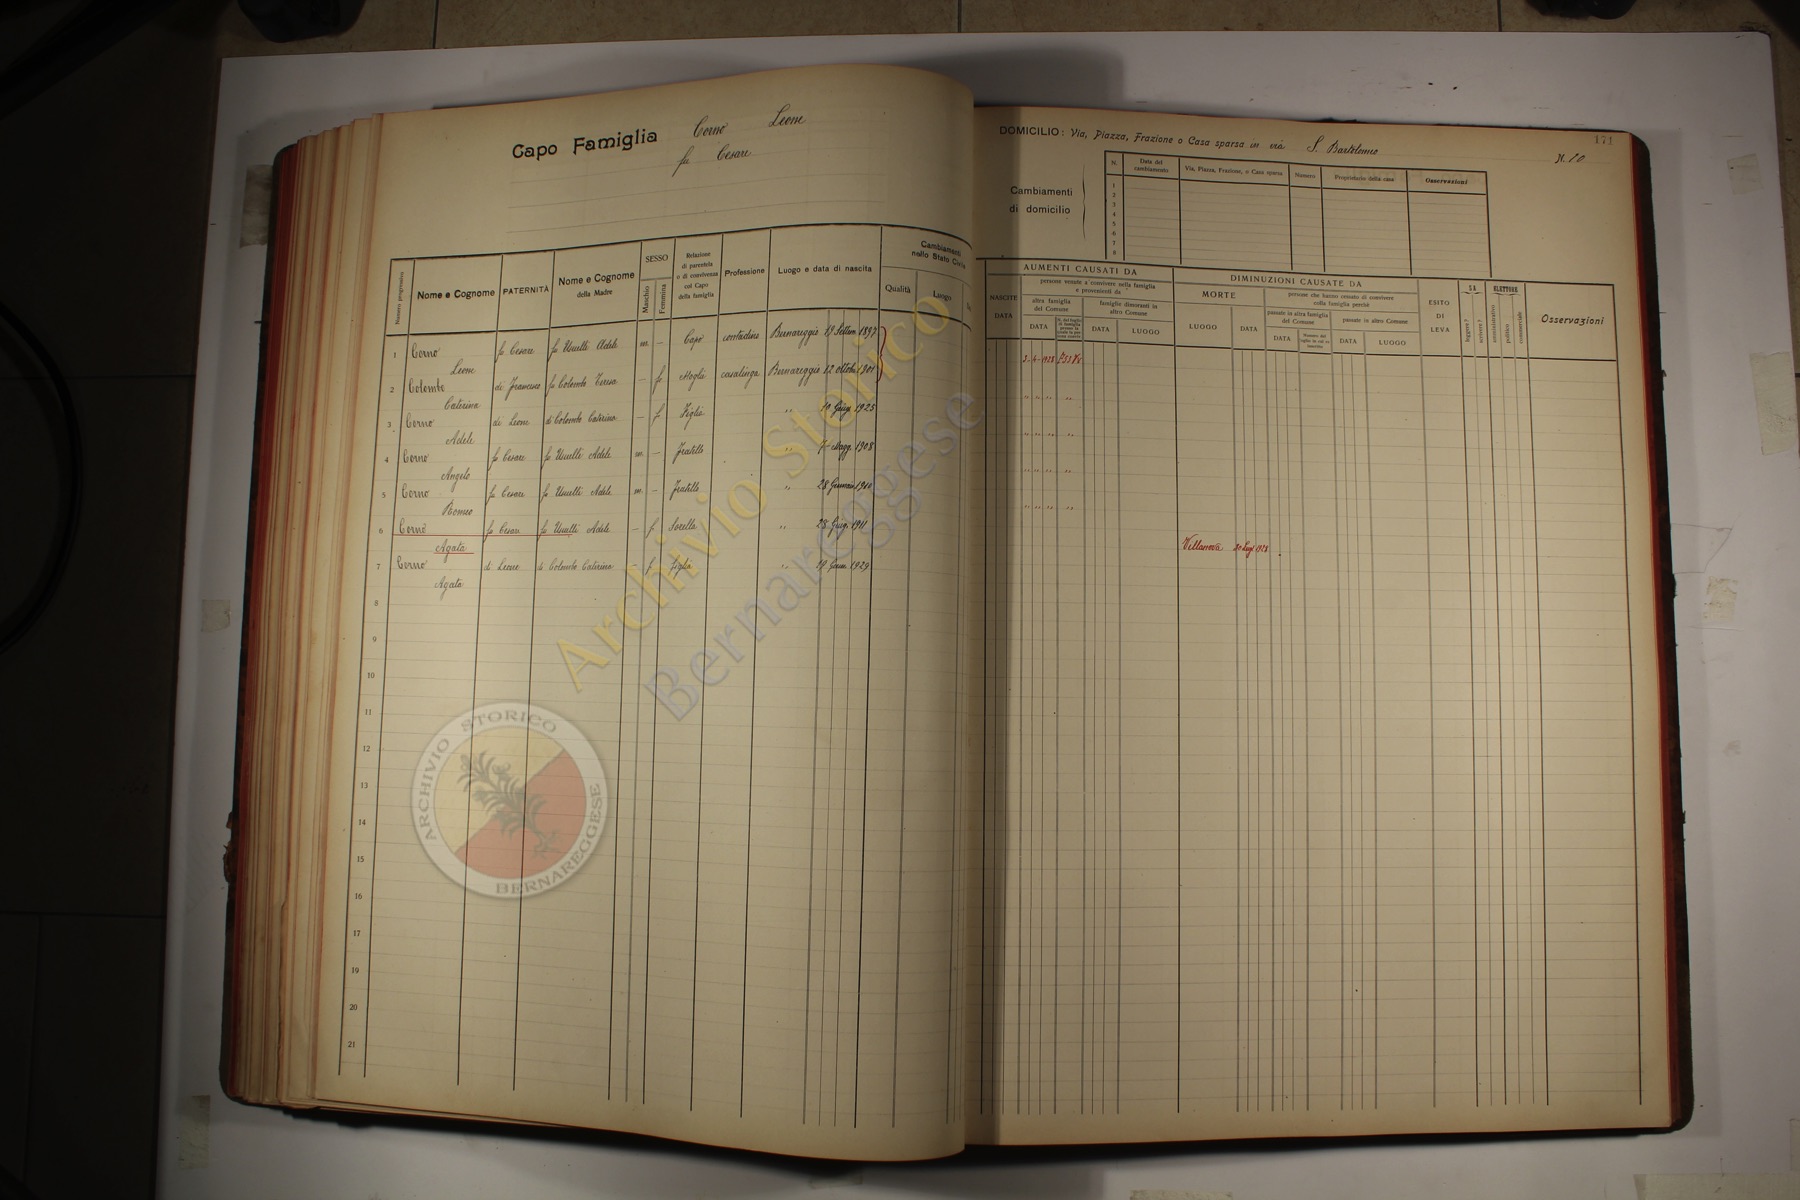 Capo Famiglia Corno Leone
fu Cesare
Numero progressivo
Nome e Cognome
PATERNITÀ
Nome e Cognome
della Madre
SESSO
Maschio
Femmina
Relazione
di parentela
o di convivenza
col Capo
della famiglia
Professione
Luogo e data di nascita
Cambiamenti
nello Stato Civile
Qualità
Luogo
1 Corno fu Cesare fu Usuelli Adele m. – Capo contadino Bernareggio 19 Settem 1897
Leone
2 Colombo di Francesco fu Colombo Teresa – f. Moglie casalinga Bernareggio 12 Ottob. 1901
Caterina
3 Corno di Leone di Colombo Caterina – f. Figlia " 19 Giug. 1925
Adele
4 Corno fu Cesare fu Usuelli Adele m. – Fratello " 7 Magg. 1908
Angelo
5 Corno fu Cesare fu Usuelli Adele m. – Fratello " 28 Gennaio
Romeo
6 Corno fu Cesare fu Usuelli Adele – f. Sorella " 28 Giug. 1911
Agata
7 Corno di Leone di Colombo Caterina – f. Figlia " 19 Genn. 1929
Agata
8
9
10
11
12
13
14
15
16
17
18
19
20
21
171
DOMICILIO: Via, Piazza, Frazione o Casa sparsa in via S. Bartolomeo N. 10
Cambiamenti
di domicilio
N.
Data del
cambiamento
Via, Piazza, Frazione, o Casa sparsa
Numero
Proprietario della casa
Osservazioni
1
2
3
4
5
6
7
8
NASCITE
DATA
AUMENTI CAUSATI DA
persone venute a convivere nella famiglia
e provenienti da
altra famiglia
del Comune
DATA
famiglie dimoranti in
altro Comune
DATA
LUOGO
DIMINUZIONI CAUSATE DA
MORTE
LUOGO
DATA
persone che hanno cessato di convivere
colla famiglia perchè
passate in altra famiglia
del Comune
DATA
passate in altro Comune
DATA
LUOGO
ESITO
DI
LEVA
SA
leggere?
scrivere?
ELETTORE
amministrativo
politico
commerciale
Osservazioni
Villanova 30 Lugl 1928
Archivio Storico
Bernareggese
ARCHIVIO STORICO
BERNAREGGESE